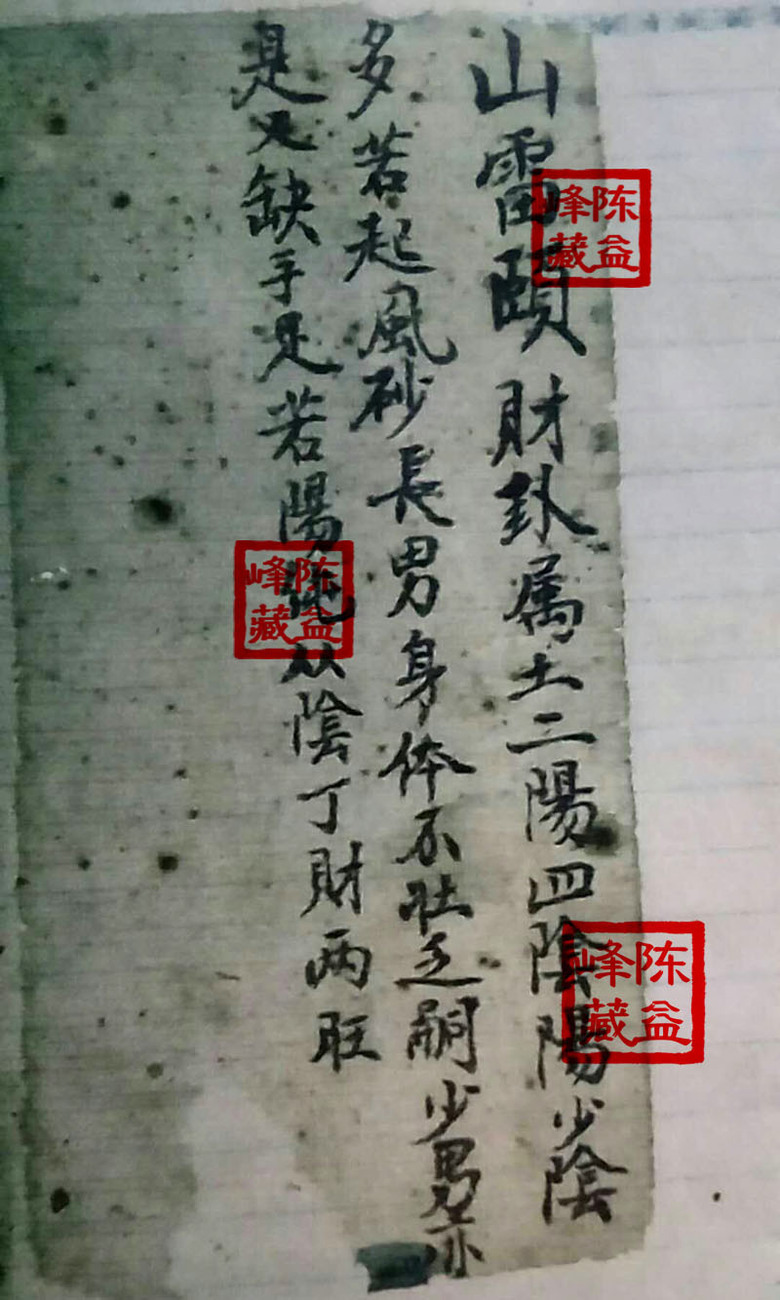 山雷頤財卦属土二陽四陰陽少陰
多若起風砂長男身体不壮乏嗣少男亦
是又缺手足若陽從陰丁財兩旺
陈益峰藏
陈益峰藏
陈益峰藏